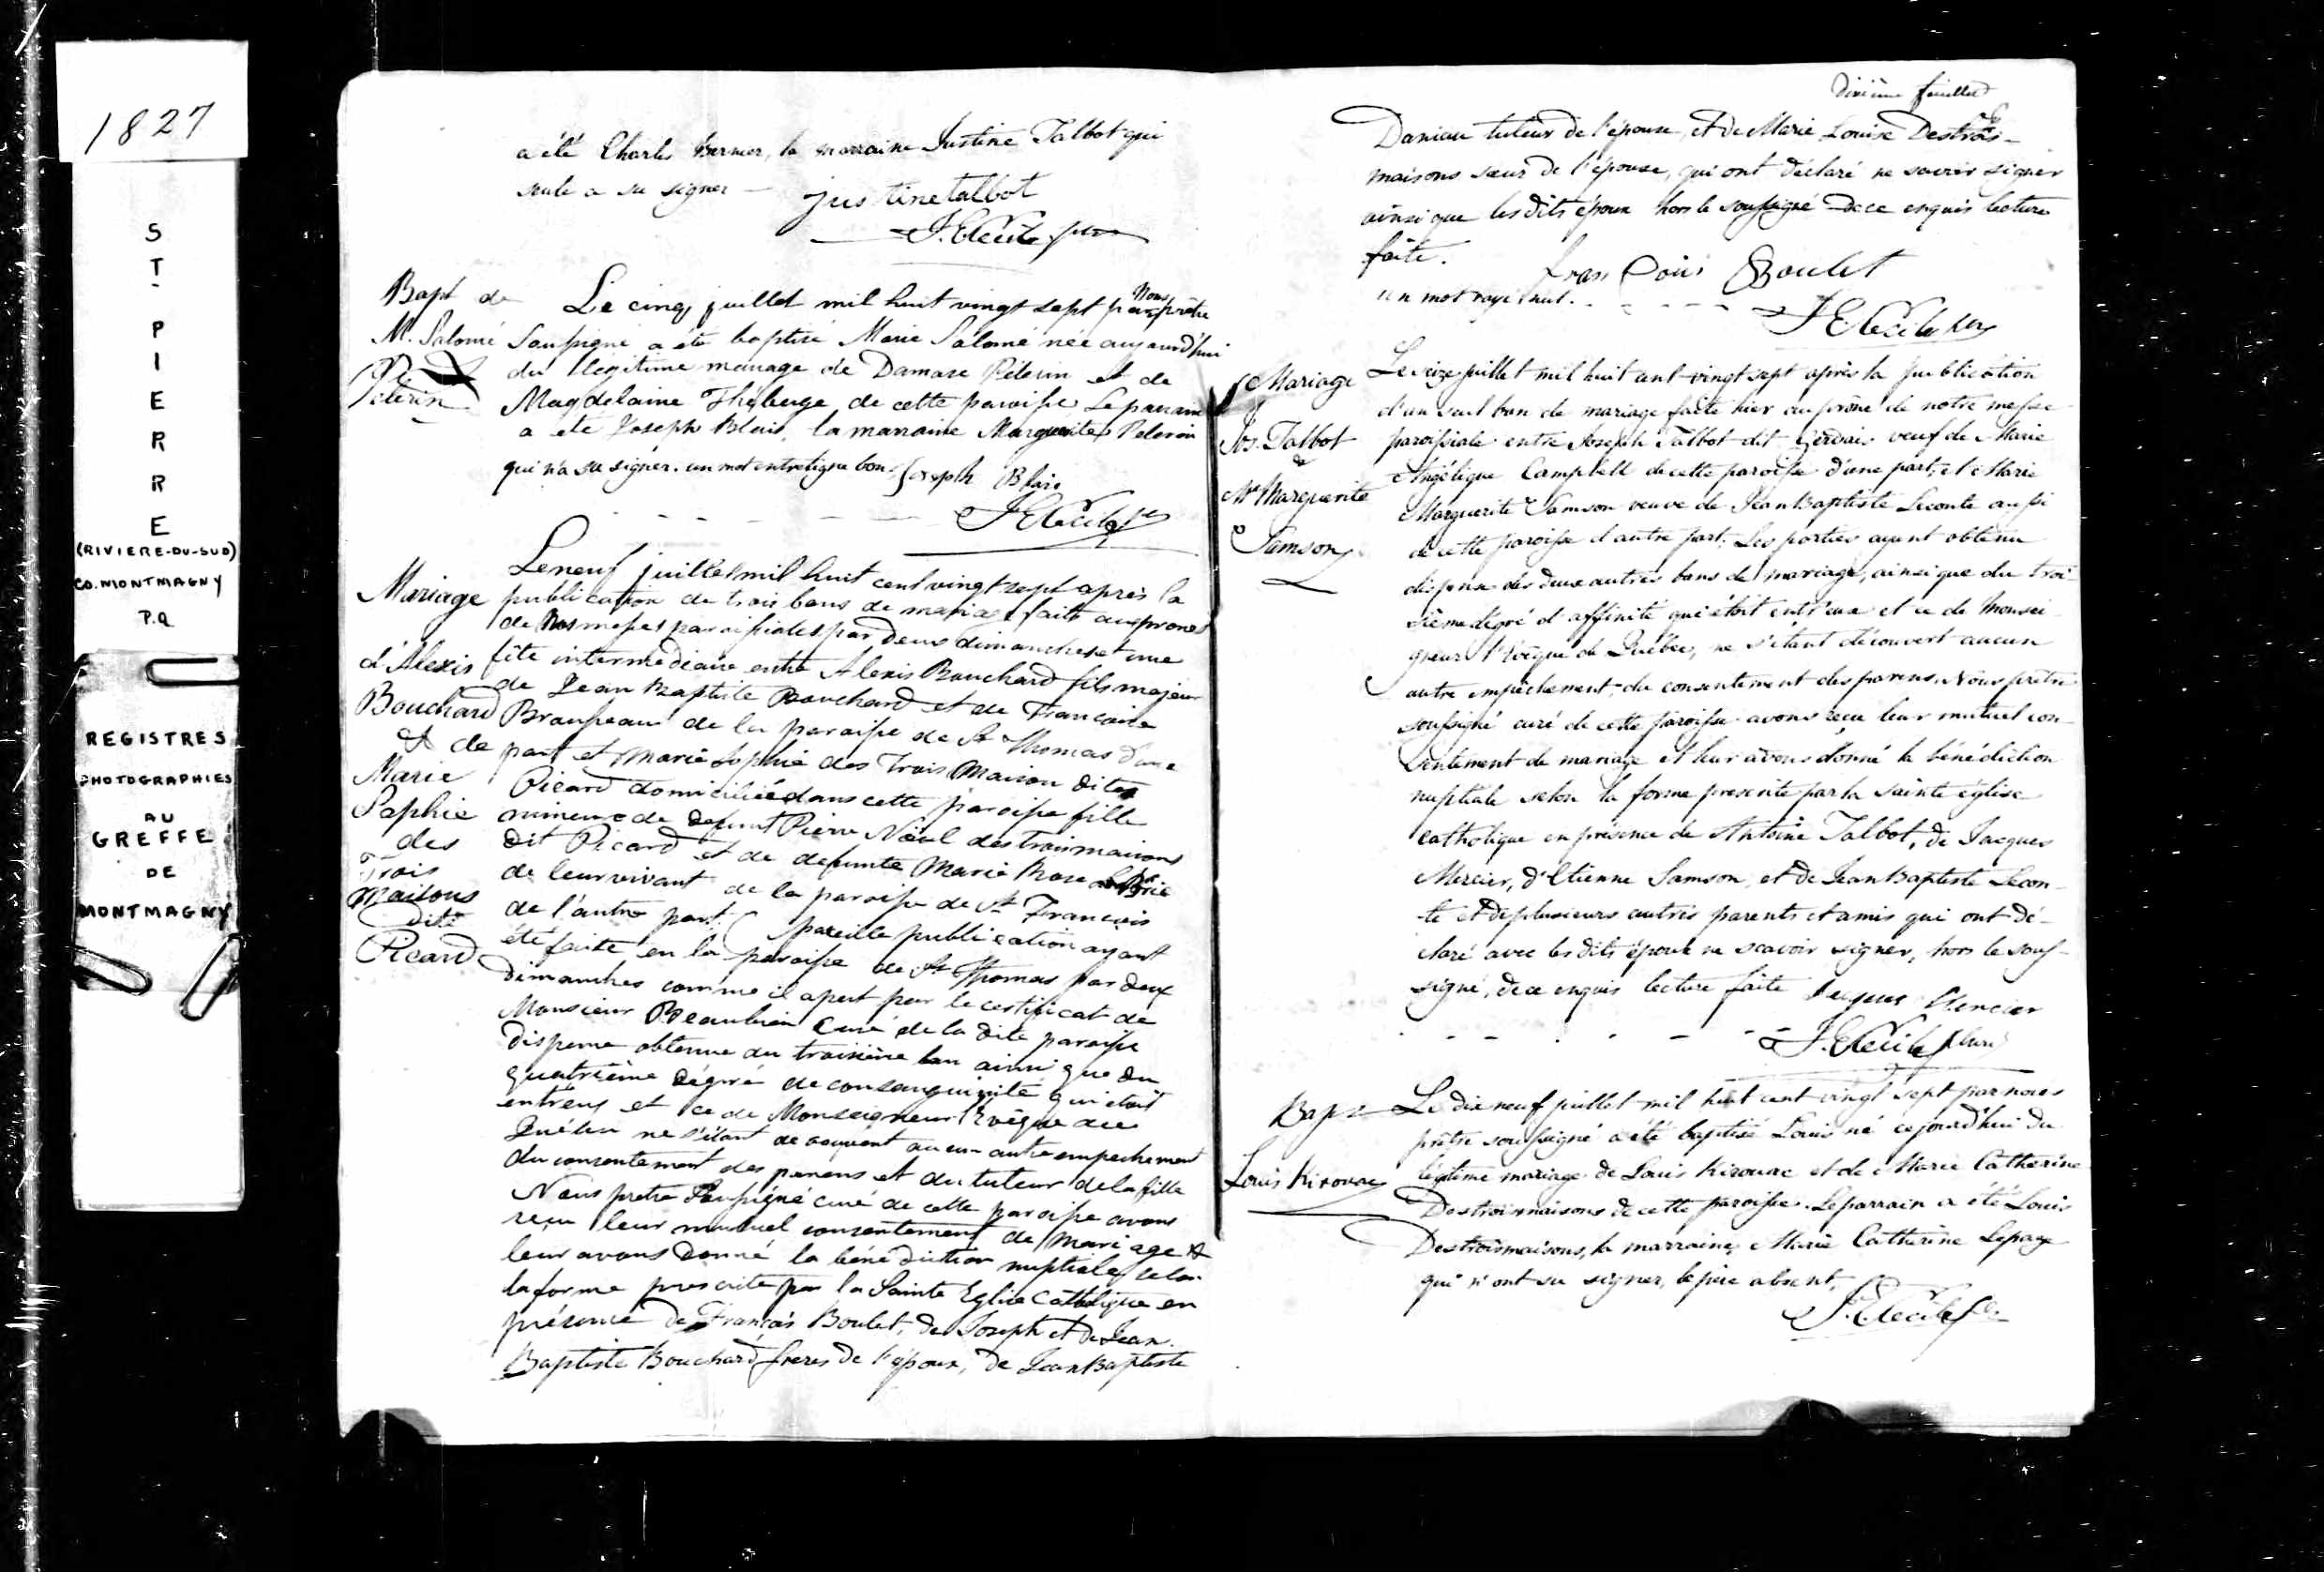 1827
S
T
P
I
E
R
R
E
(RIVIERE-DU-SUD)
CO. MONTMAGNY
P.Q
REGISTRES
PHOTOGRAPHIES
AU
GREFFE
DE
MONTMAGNY
a été Charles Bernier, la marraine Justine Talbot qui
seule a su signer —
justine talbot
Bapt de
M. Salomé
Pélerin
Le cinq juillet mil huit vingt sept par Nous prêtre
Soussigné a été baptisé Marie Salomé née aujourd'hui
du légitime mariage de Damase Pélerin et de
Magdelaine Théberge de cette paroisse Le parrain
a été Joseph Blais, la marraine Marguerite Pelerin
qui n'a su signer. un mot entreligne bon. Joseph Blais
Mariage
d'Alexis
Bouchard
& de
Marie
Sophie
des
Trois
Maisons
dite
Picard
Le neuf juillet mil huit cent vingt sept après la
publication de trois bans de mariage faite aux prones
de Nos messes paroissiales par deux dimanches et une
fête intermediaire entre Alexis Bouchard fils majeur
de Jean Baptiste Bouchard et de Francoise
de la paroisse de St Thomas d'une
part et Marie Sophie des Trois Maison dite
Picard domiciliée dans cette paroisse fille
mineure de defunt Pierre Noël des trois maisons
dit Picard et de defunte Marie Rose
de leur vivant de la paroisse de St Francois
de l'autre part. pareille publication ayant
été faite en la paroisse de St Thomas par deux
dimanches comme il apert par le certificat de
Monsieur Beaubien Curé de la dite paroisse
dispense obtenue du troisième ban ainsi que du
quatrième dégré de consanguinité qui etoit
entreux et ce de Monseigneur l'Evêque de
Québec ne s'étant découvert aucun autre empechement
du consentement des parens et du tuteur de la fille
Nous pretre Soussigné curé de cette paroisse avons
reçu leur mutuel consentement de mariage &
leur avons donné la bénédiction nuptiale selon
la forme prescrite par la Sainte Eglise Catholique en
présence de François Boulet, de Joseph et de Jean
Baptiste Bouchard freres de l'époux, de Jean Baptiste
Dixième feuillet
Daniau tuteur de l'épouse, et de Marie Louise Destrois-
maisons sœur de l'épouse, qui ont déclaré ne savoir signer
ainsi que les dits époux hors le soussigné de ce enquis lecture
faite.
francois Boulet
un mot rayé nul.
Mariage
Jos. Talbot
&
Me Marguerite
Samson
Le seize juillet mil huit cent vingt sept après la publication
d'un seul ban de mariage faite hier au prône de notre messe
paroissiale entre Joseph Talbot dit Gervais veuf de Marie
Angélique Campbell de cette paroisse d'une part, et Marie
Marguerite Samson veuve de Jean Baptiste Leconte aussi
de cette paroisse d'autre part. Les parties ayant obtenu
dispense des deux autres bans de mariage, ainsi que du troi-
sième dégré d'affinité qui étoit entr'eux et ce de Monsei-
gneur l'évêque de Québec, ne s'étant découvert aucun
autre empêchement du consentement des parens, Nous prêtre
soussigné curé de cette paroisse avons reçu leur mutuel con-
sentement de mariage et leur avons donné la bénédiction
nuptiale selon la forme prescrite par la Sainte église
catholique en présence de Antoine Talbot, de Jacques
Mercier, d'Etienne Samson, et de Jean Baptiste Lecon-
te et de plusieurs autres parents et amis qui ont dé-
claré avec les dits époux ne scavoir signer, hors le sous-
signé, de ce enquis lecture faite Jacques Mercier
Bapt
Louis Kirouac
Le dix neuf juillet mil huit cent vingt sept par nous
prêtre soussigné a été baptisé Louis né cejourd'hui du
légitime mariage de Louis Kirouac et de Marie Catherine
Destroismaisons de cette paroisse. Le parrain a été Louis
Destroismaisons, la marraine Marie Catherine Lepage
qui n'ont su signer, le père absent.